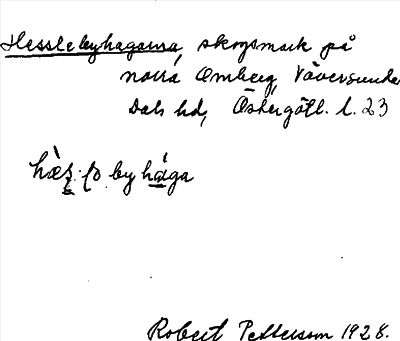 Hesslebyhagarna, skogsmark på
norra Omberg, Väversunda
Dals hd, Östergötl. l. 23
by håga
Robert Petterson 1928.